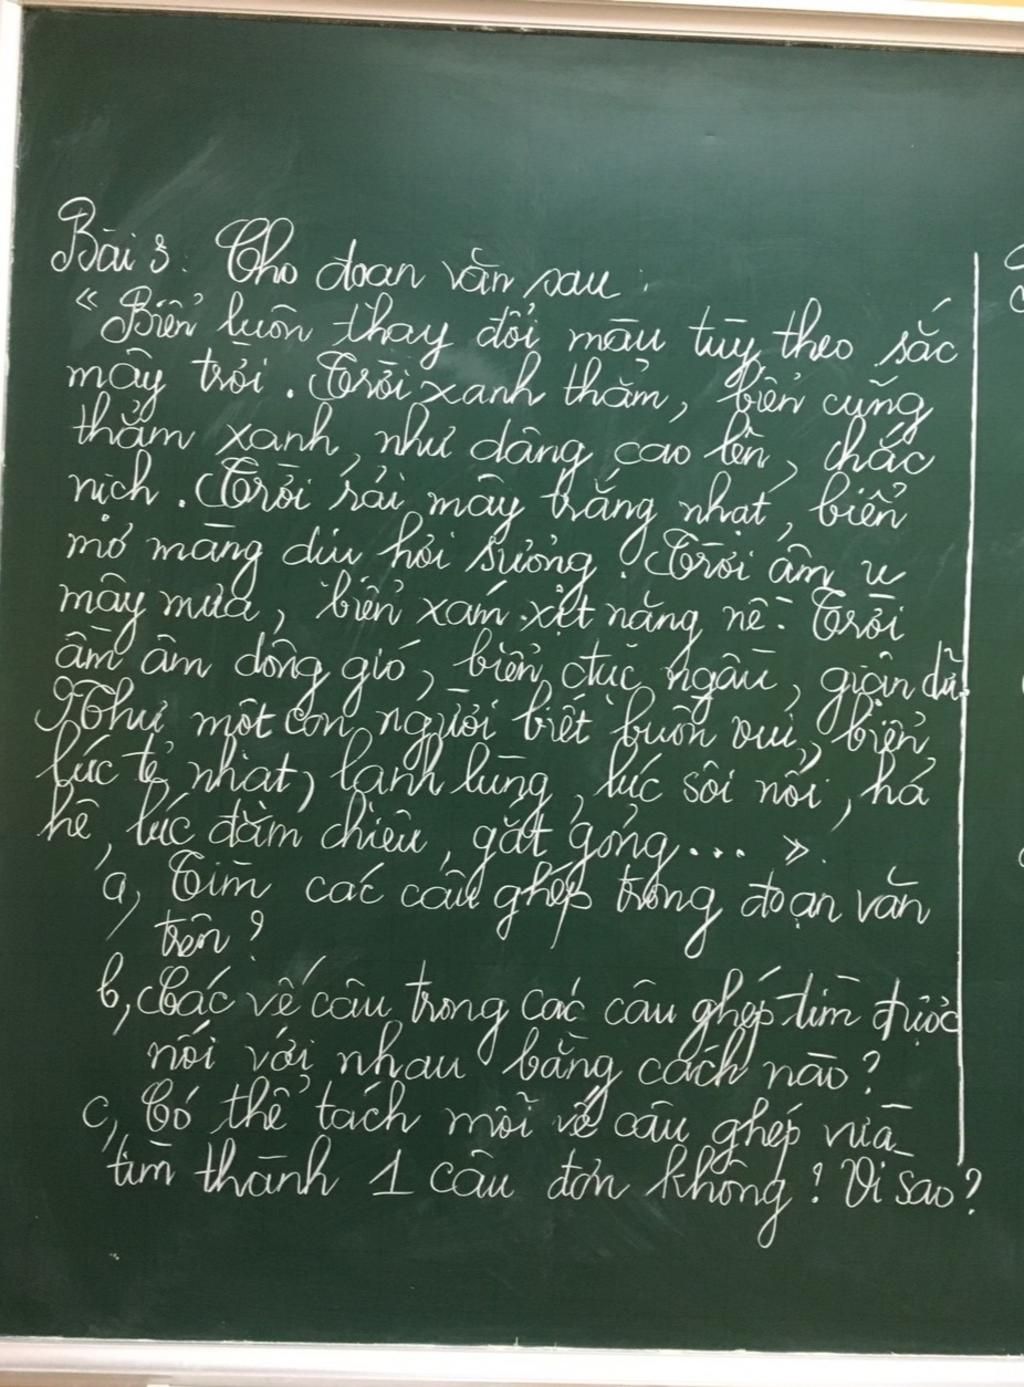 Bài 3. Cho đoạn văn sau:
"Biển luôn thay đổi màu tùy theo sắc
mây trời. Trời xanh thẳm, biển cũng
thẳm xanh, như dâng cao lên, chắc
nịch. Trời rải mây trắng nhạt, biển
mơ màng dịu hơi sương. Trời âm u
mây mưa, biển xám xịt nặng nề. Trời
ầm ầm dông gió, biển đục ngầu, giận dữ.
Như một con người biết buồn vui, biển
lúc tẻ nhạt, lạnh lùng, lúc sôi nổi, hả
hê, lúc đăm chiêu, gắt gỏng... ".
a, Tìm các câu ghép trong đoạn văn
trên?
b, Các vế câu trong các câu ghép tìm được
nối với nhau bằng cách nào?
c, Có thể tách mỗi vế câu ghép vừa
tìm thành 1 câu đơn không? Vì sao?